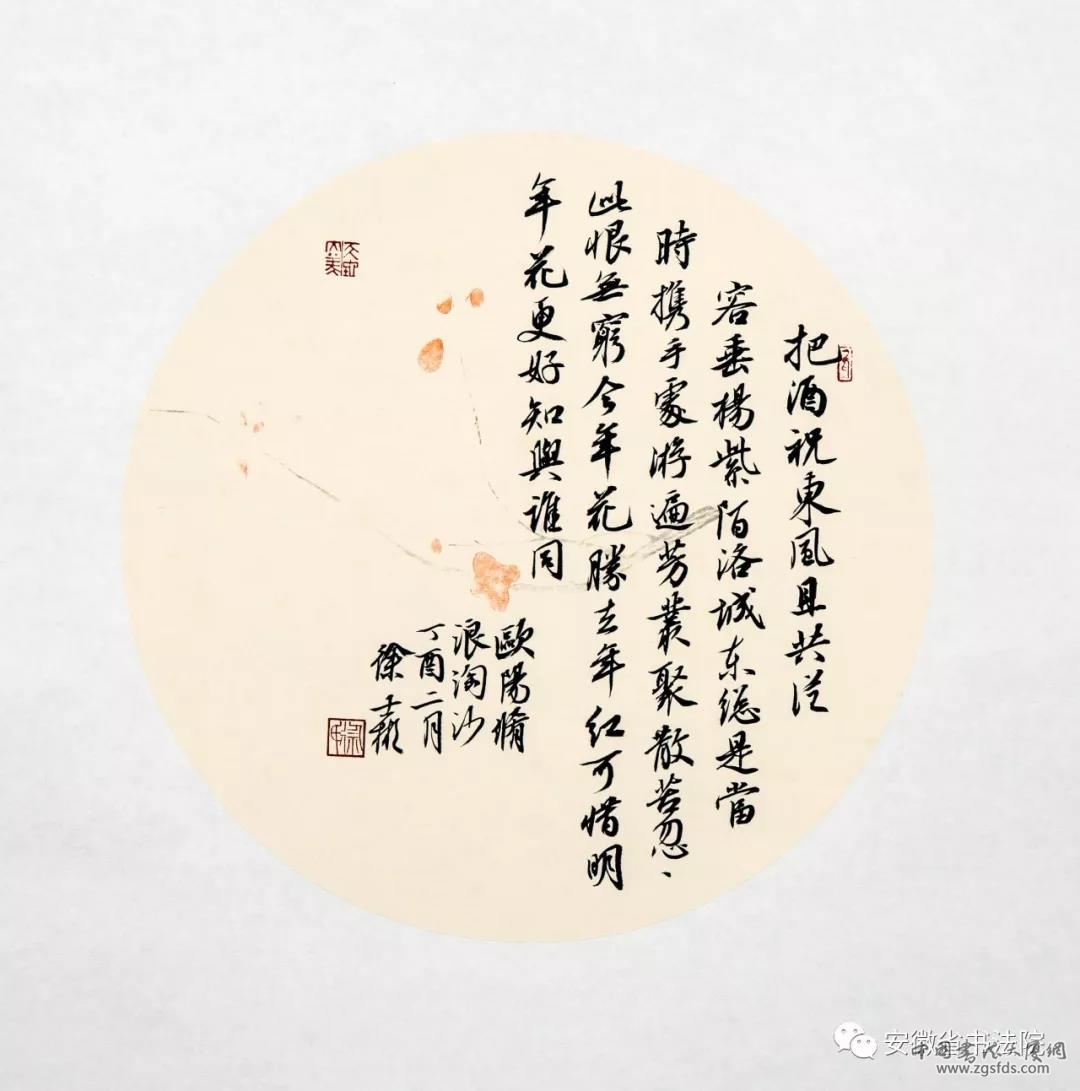 把酒祝東風且共從
容垂楊紫陌洛城东總是當
時携手處游遍芳叢聚散苦忽、
此恨無窮今年花勝去年紅可惜明
年花更好知與誰同
歐陽脩
浪淘沙
丁酉二月
徐士彬
天地大美
安徽省书法院
www.zgsfds.com